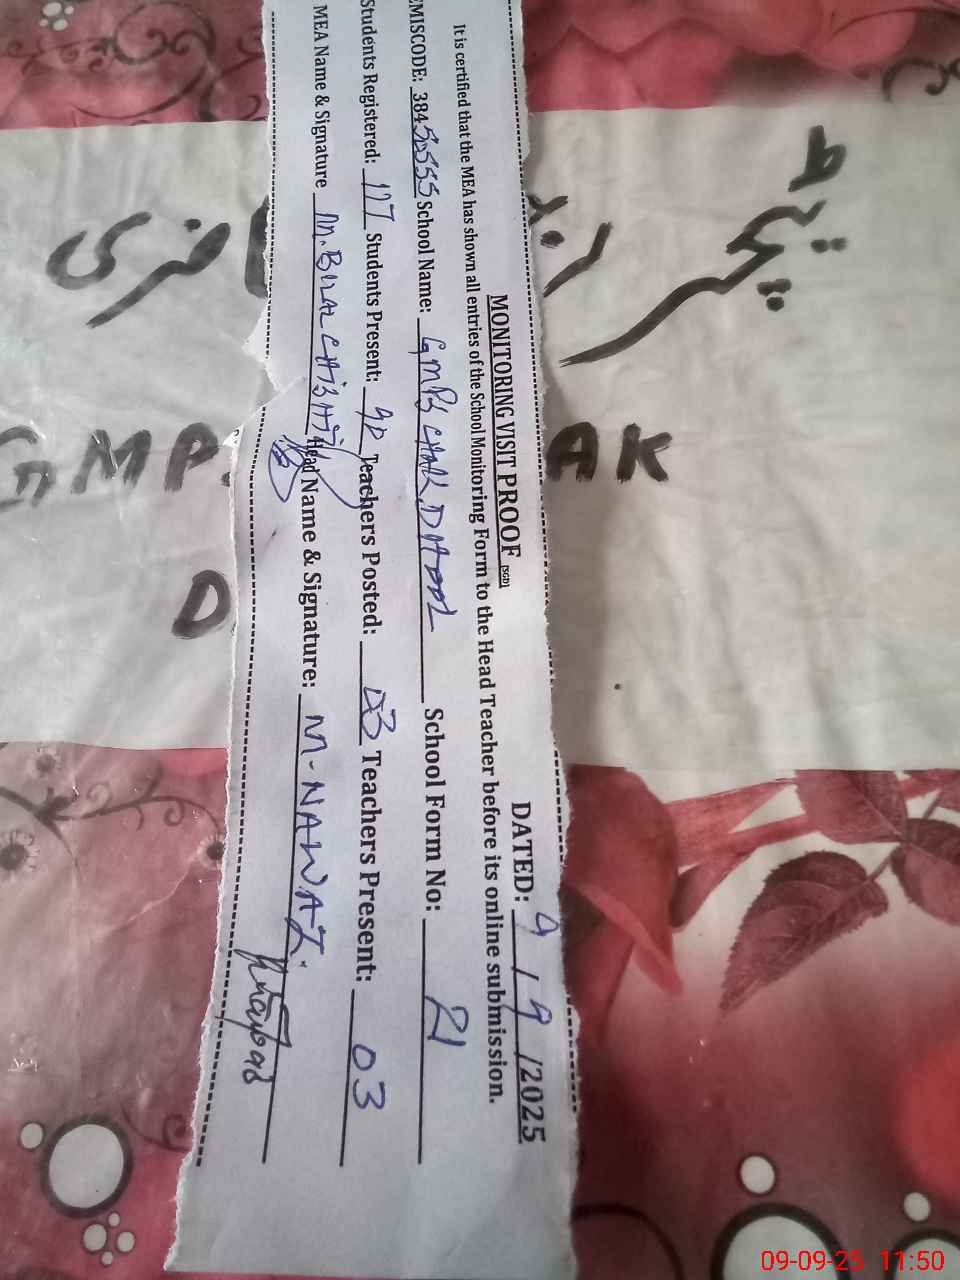 MONITORING VISIT PROOF (SGD)
DATED: 9/9/2025
It is certified that the MEA has shown all entries of the School Monitoring Form to the Head Teacher before its online submission.
EMISCODE: 38450555 School Name: GMPS CHAK DADOL School Form No: 21
Students Registered: 117 Students Present: 90 Teachers Posted: 03 Teachers Present: 03
MEA Name & Signature M. BILAL CHISHTI Head Name & Signature: M. NAWAZ
ٹیچر
فزی
GMPS AK
D
09-09-25 11:50